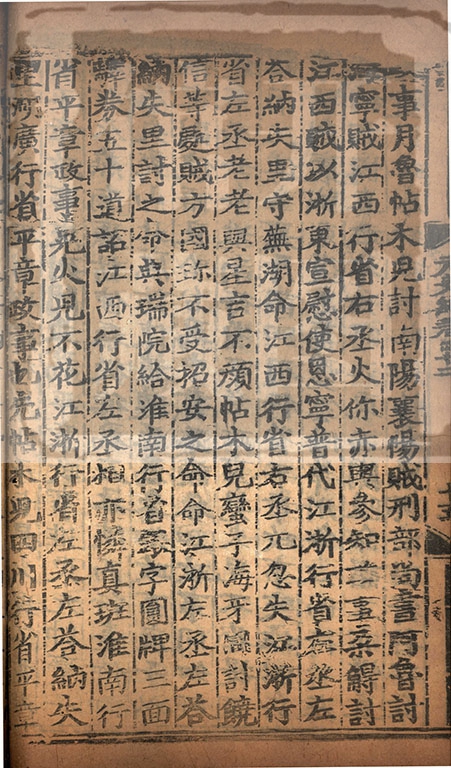 事月魯帖木兒討南陽襄陽賊刑部尚書阿魯討
海寧賊江西行省右丞火你赤與參知政事朶䚟討
江西賊以浙東宣慰使恩寧普代江浙行省左丞左
荅納失里守蕪湖命江西行省右丞兀忽失江浙行
省左丞老老與星吉不顔帖木兒蠻子海牙同討饒
信等處賊方國珍不受招安之命命江浙左丞左荅
納失里討之命典瑞院給淮南行省銀字圓牌三面
驛券五十道詔江西行省左丞相亦憐真班淮南行
省平章政事晃火兒不花江浙行省左丞左荅納失
里湖廣行省平章政事也先帖木兒四川行省平章